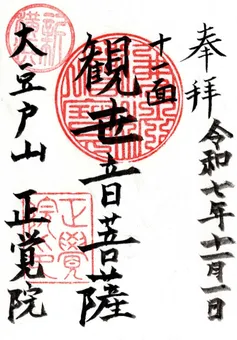 奉拝
令和七年十一月一日
十一面
観世音菩薩
大豆戸山
正覚院
正覺
院印